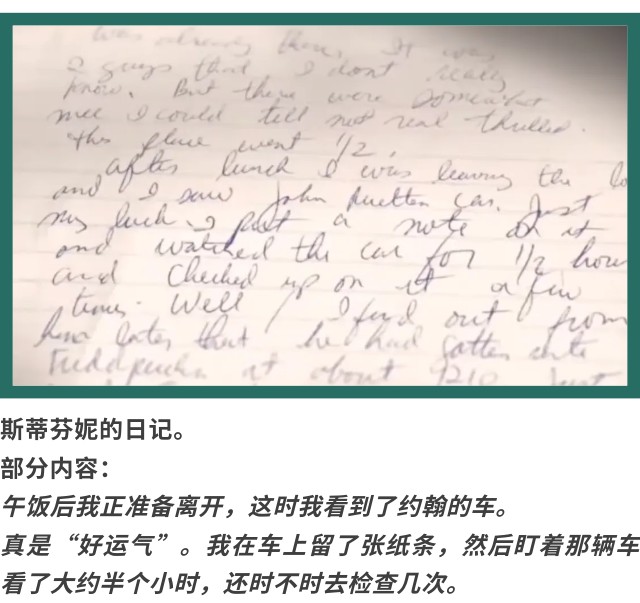 was already there. It was
2 guys that I dont really
know. But there were somewhat
me I could tell not real thrilled.
this place went 1/2.
after lunch I was leaving the lo
and I saw John Ruetten car. Just
my luck. I put a note on it
and watched the car for 1/2 hour
and checked up on it a few
times. Well I find out from
him later that he had gotten into
at about 9210 Just
斯蒂芬妮的日记。
部分内容：
午饭后我正准备离开，这时我看到了约翰的车。
真是“好运气”。我在车上留了张纸条，然后盯着那辆车
看了大约半个小时，还时不时去检查几次。